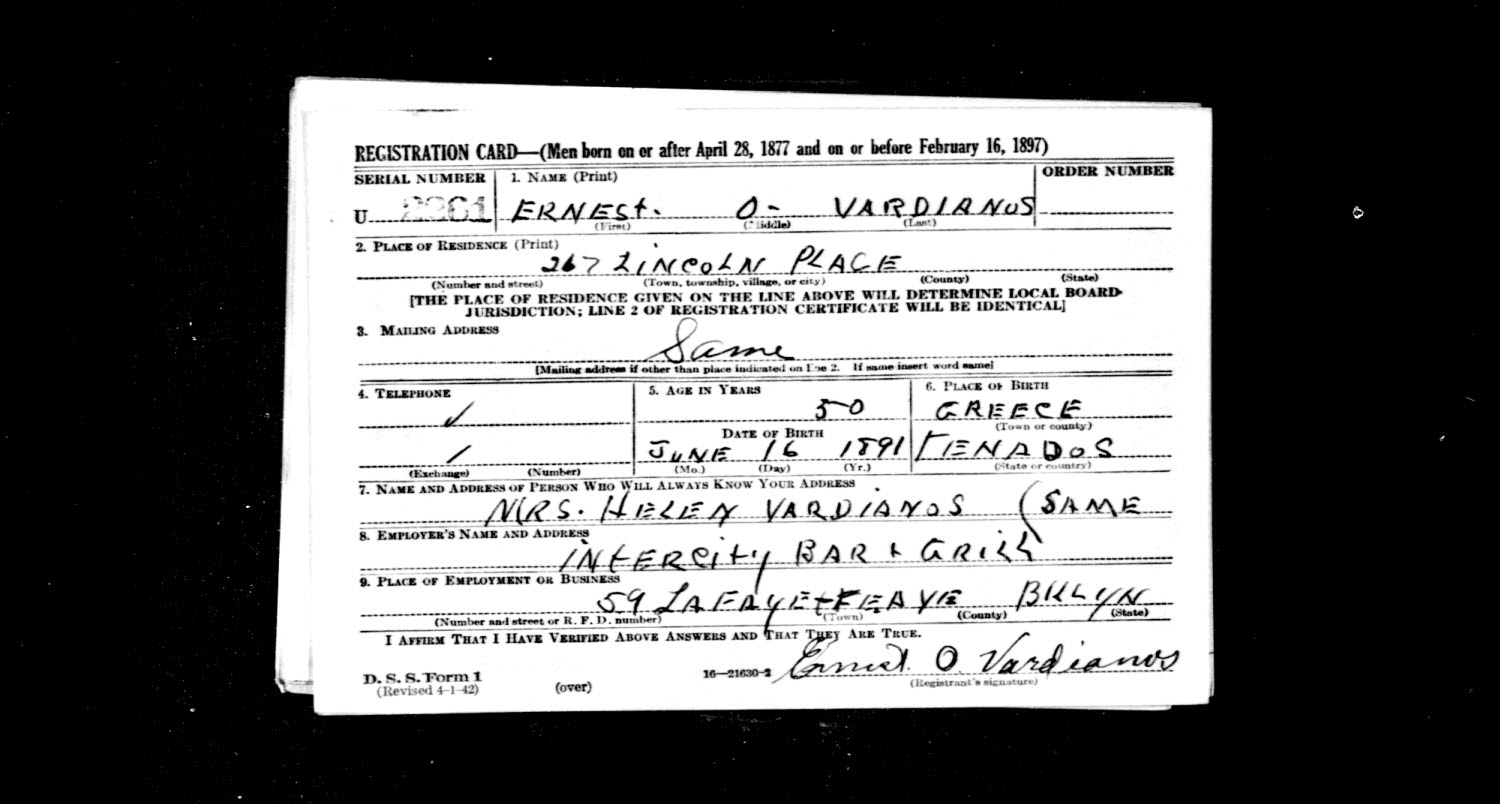 REGISTRATION CARD—(Men born on or after April 28, 1877 and on or before February 16, 1897)
SERIAL NUMBER 1. NAME (Print) ORDER NUMBER
U 2361 ERNEST. O- VARDIANOS
(First) (Middle) (Last)
2. PLACE OF RESIDENCE (Print)
267 LINCOLN PLACE
(Number and street) (Town, township, village, or city) (County) (State)
[THE PLACE OF RESIDENCE GIVEN ON THE LINE ABOVE WILL DETERMINE LOCAL BOARD
JURISDICTION; LINE 2 OF REGISTRATION CERTIFICATE WILL BE IDENTICAL]
3. MAILING ADDRESS
Same
[Mailing address if other than place indicated on line 2. If same insert word same]
4. TELEPHONE 5. AGE IN YEARS 6. PLACE OF BIRTH
50 GREECE
DATE OF BIRTH (Town or county)
JUNE 16 1891 TENADOS
(Exchange) (Number) (Mo.) (Day) (Yr.) (State or country)
7. NAME AND ADDRESS OF PERSON WHO WILL ALWAYS KNOW YOUR ADDRESS
MRS. HELEN VARDIANOS (SAME
8. EMPLOYER'S NAME AND ADDRESS
INTERCITY BAR + GRILL
9. PLACE OF EMPLOYMENT OR BUSINESS
59 LAFAYETTE AVE BKLYN
(Number and street or R. F. D. number) (Town) (County) (State)
I AFFIRM THAT I HAVE VERIFIED ABOVE ANSWERS AND THAT THEY ARE TRUE.
D. S. S. Form 1 16—21630-2 Ernest. O. Vardianos
(Revised 4-1-42) (over) (Registrant's signature)